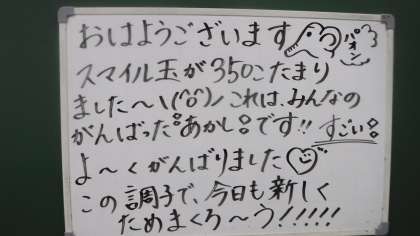 おはようございます パオン
スマイル玉が350こたまり
ました〜\(^o^)/これは、みんなの
がんばった"あかし"です!! すごい
よ〜くがんばりました
この調子で、今日も新しく
ためまくろ〜う!!!!!